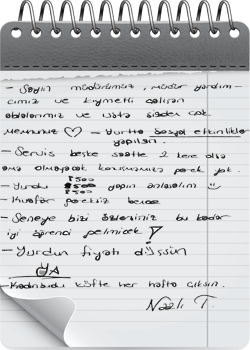 - Sayın müdürümüz, müdür yardım-
cımız ve kıymetli çalışan
ablalarımız ve usta sizden çok
memnunuz ♡ - Yurtta sosyal etkinlikler
yapılsın.
- Servis beşte saatte 2 kere olsa
ama olmayacak konuşmamıza gerek yok.
- Yurdu 8500 yapın anlaşalım :)
8500
- Kuaför gereksiz bence
- Seneye bizi özlersiniz bu kadar
iyi öğrenci gelmicek !
- Yurdun fiyatı düşsün
YA
- Kadınbudu köfte her hafta çıksın.
Nazlı T.